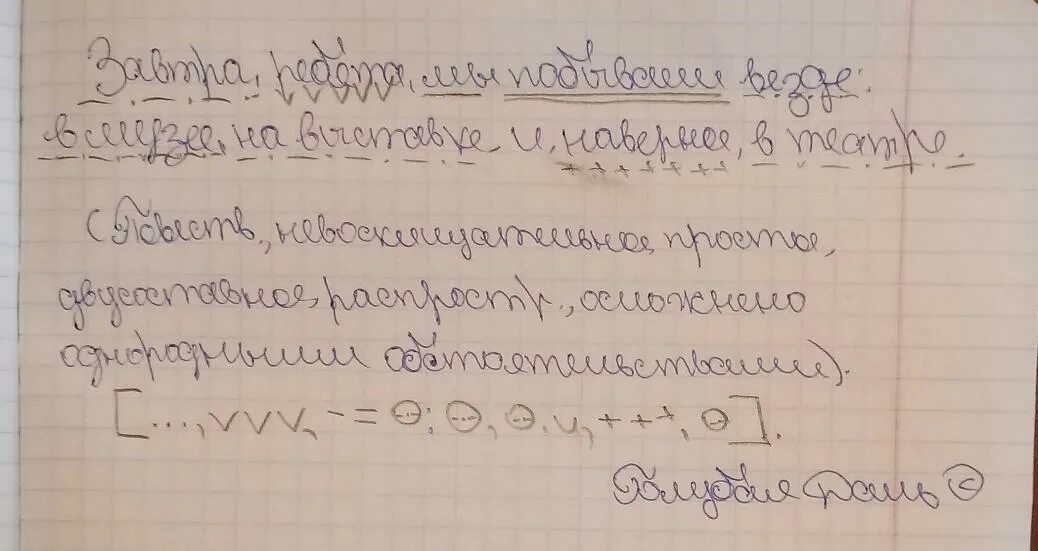 Завтра, ребята, мы побываем везде:
в музее, на выставке и, наверное, в театре.
(Повеств., невосклицательное, простое,
двусоставное, распростр., осложнено
однородными обстоятельствами).
[..., VVV, - = ⊖: ⊖, ⊖, и, +++, ⊖].
Голубая Даль